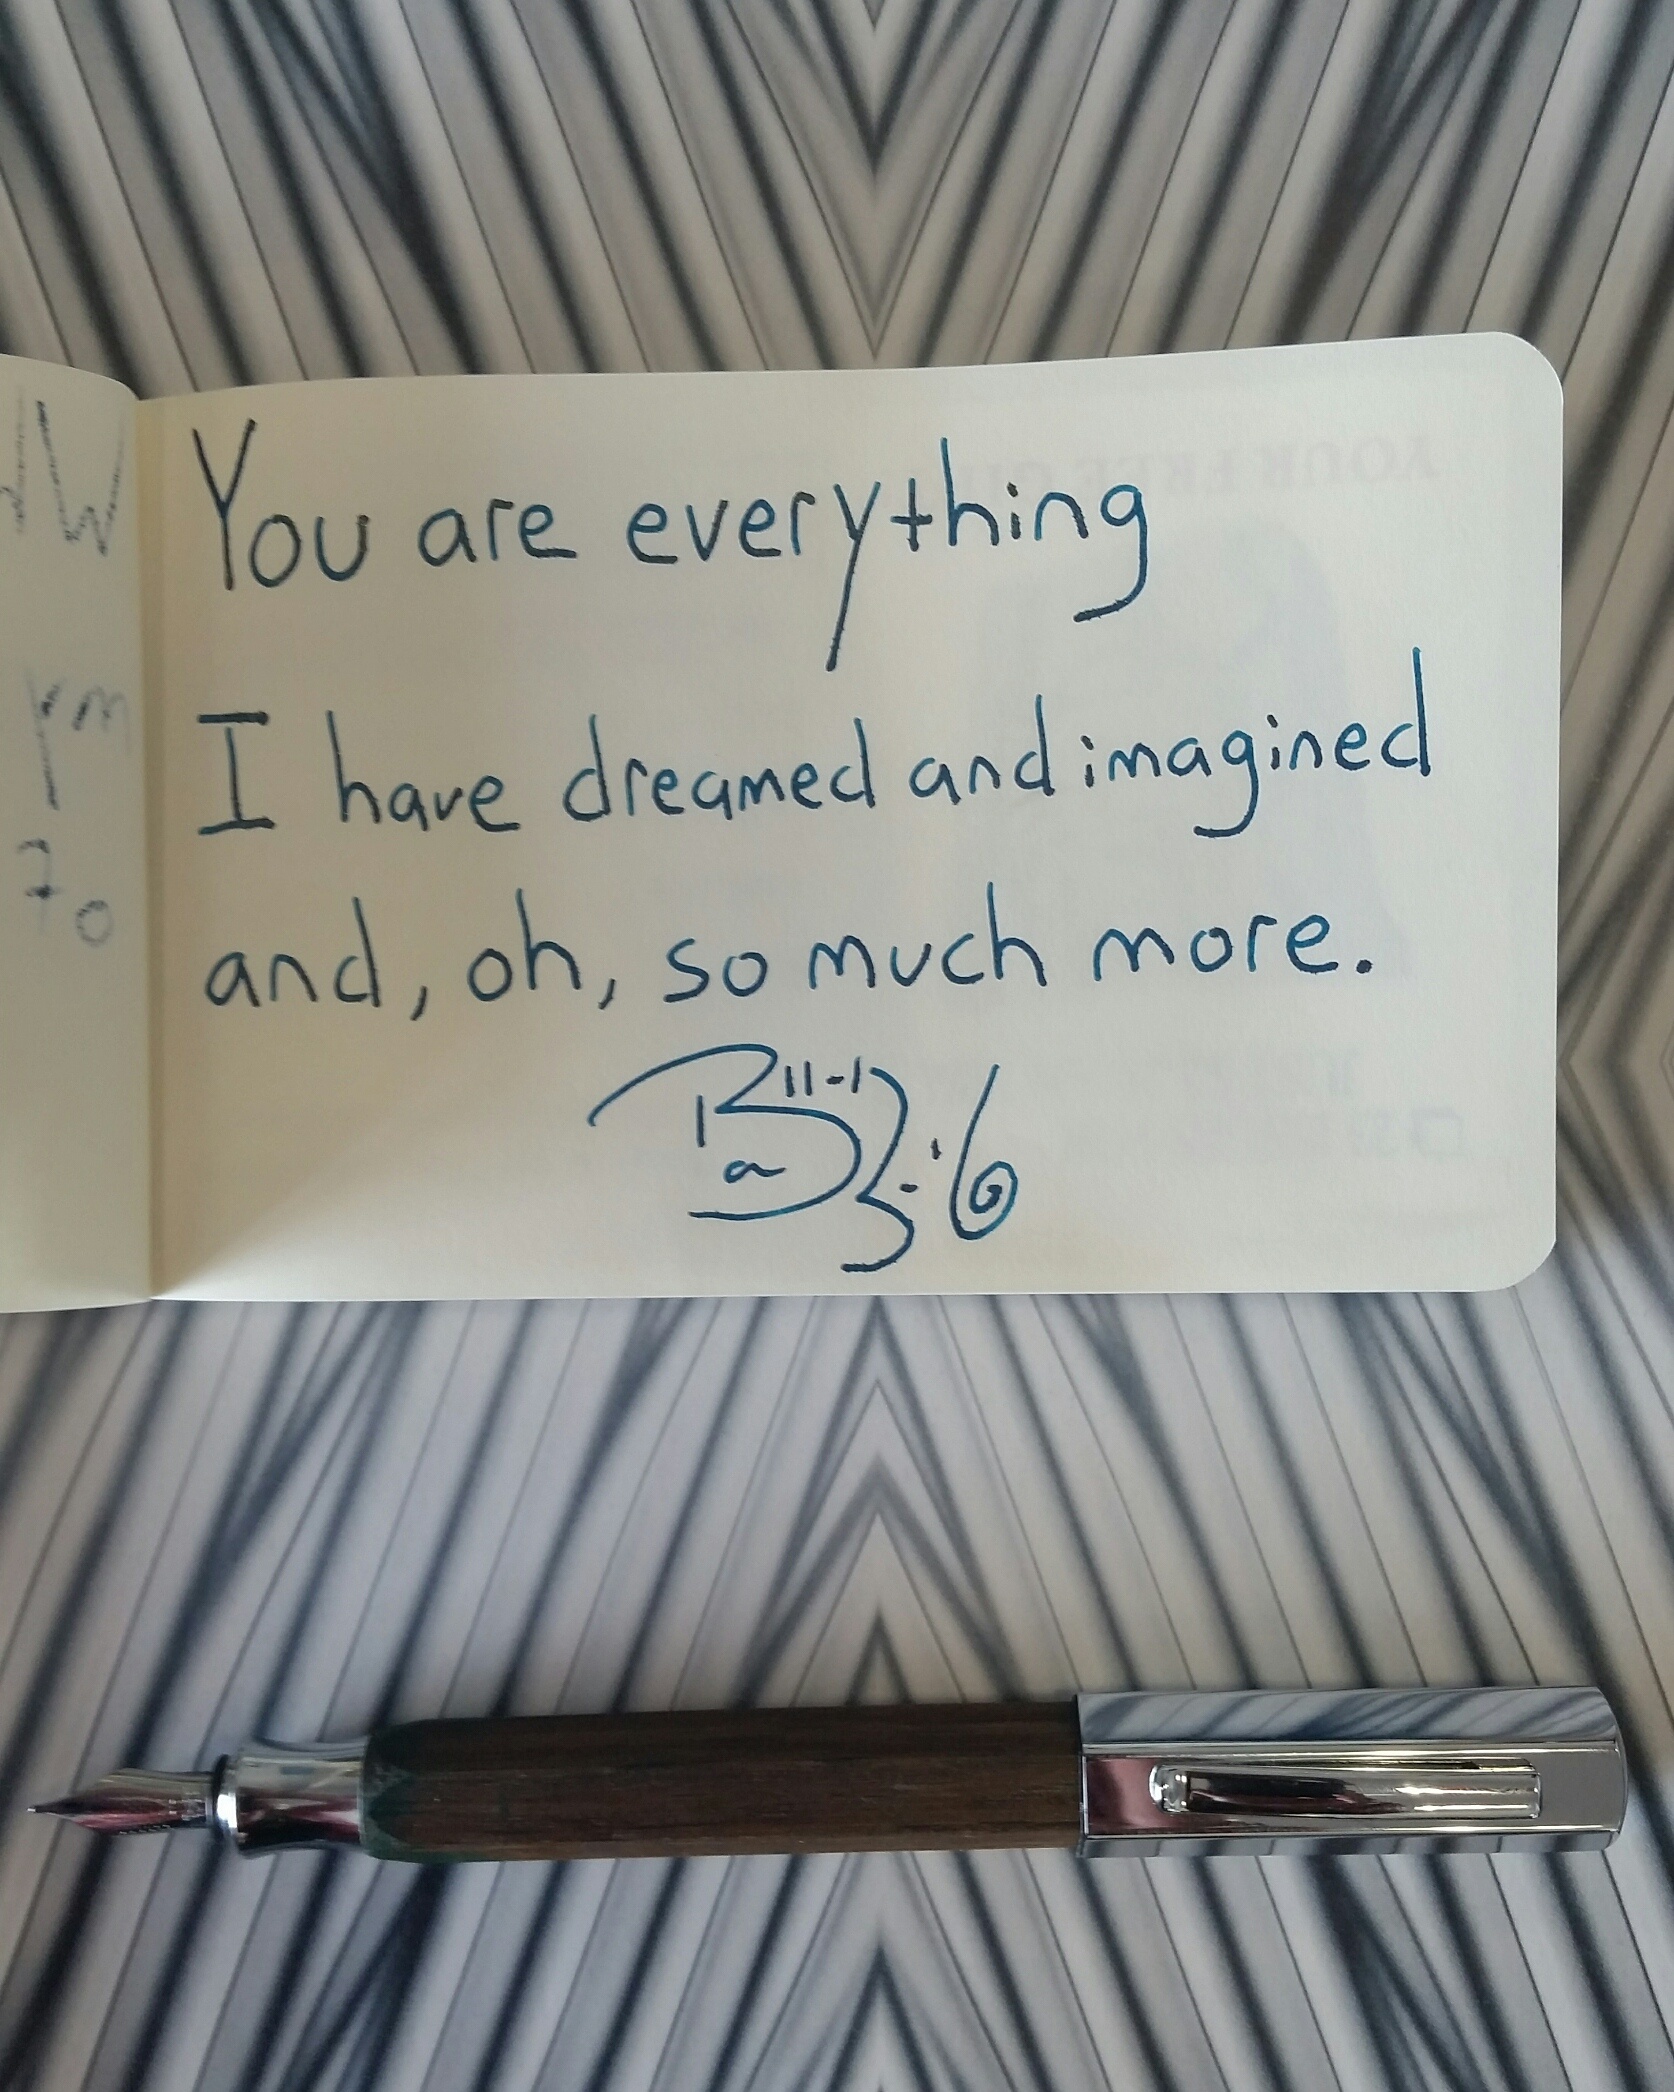 You are everything
I have dreamed and imagined
and, oh, so much more.